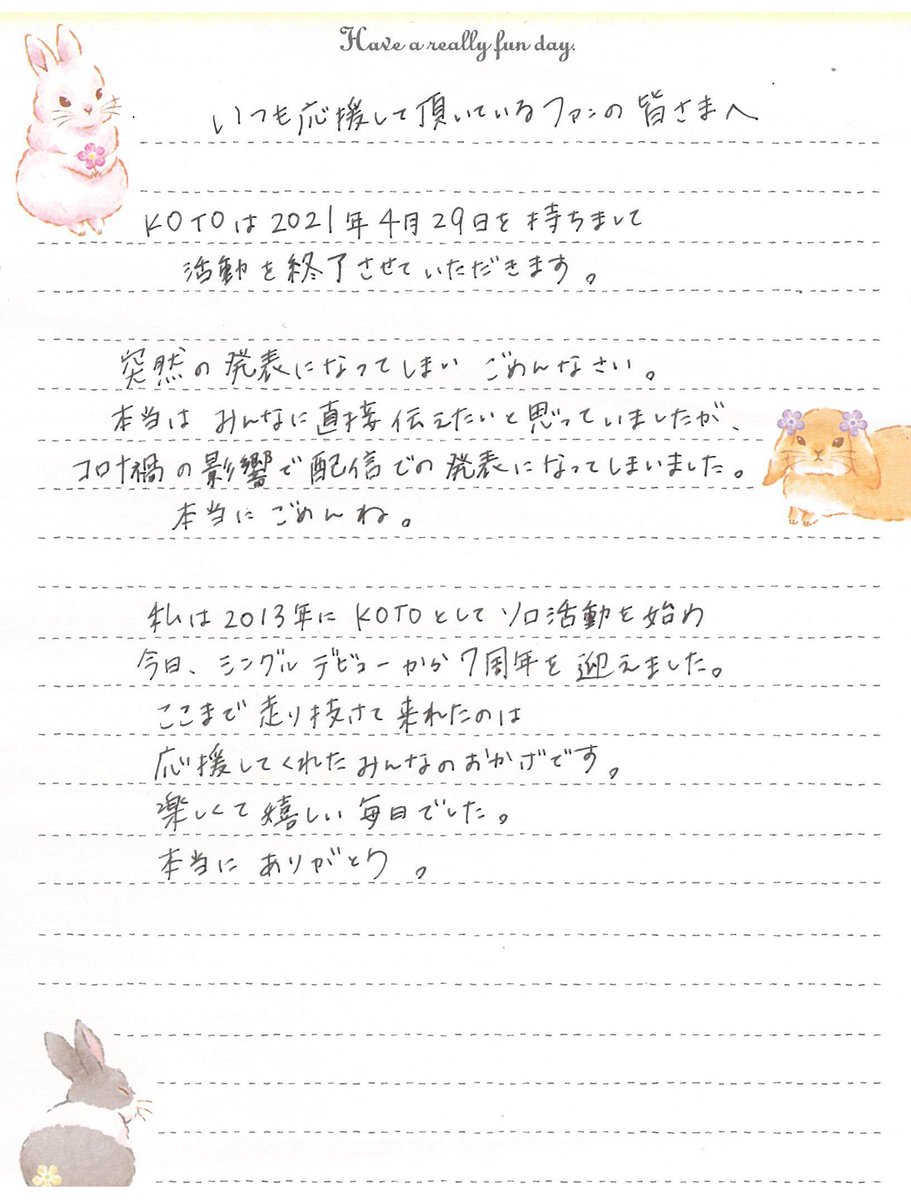 Have a really fun day.
いつも応援して頂いているファンの皆さまへ
KOTOは2021年4月29日を持ちまして
活動を終了させていただきます。
突然の発表になってしまい ごめんなさい。
本当は みんなに直接伝えたいと思っていましたが、
コロナ禍の影響で配信での発表になってしまいました。
本当に ごめんね。
私は2013年に KOTOとしてソロ活動を始め
今日、シングルデビューから7周年を迎えました。
ここまで走り抜けて来れたのは
応援してくれたみんなのおかげです。
楽しくて嬉しい毎日でした。
本当に ありがとう。